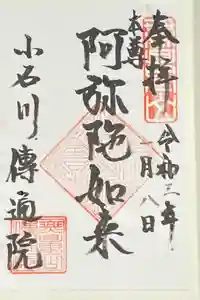 奉拝
令和三年
一月八日
本尊
阿弥陀如来
小石川
傳通院